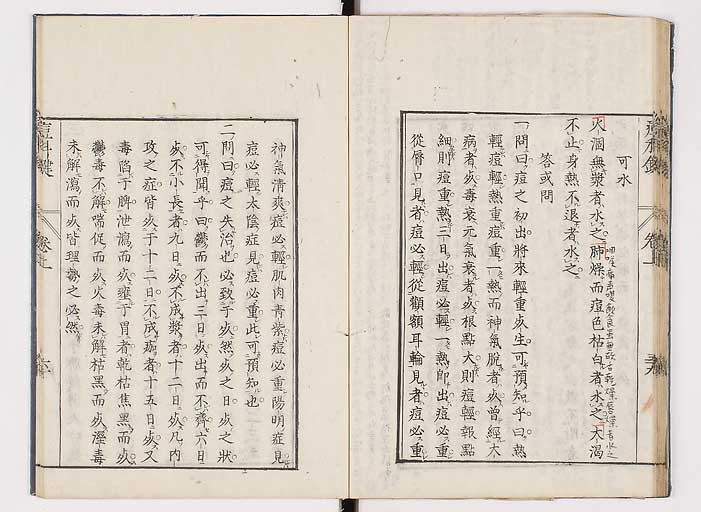 可水
火涸無漿者、水之。肺燥、而痘色枯白者、水之、大渴
不止、身熱不退者、水之。
答或問
一問曰、痘之初出、將來輕重死生、可預知乎。曰、熱
輕痘輕、熱重痘重、一熱而神氣脫者、死、曾經大
病者、死、毒衰元氣衰者、死、根點大則痘輕、報點
細則痘重、熱三日出、痘必輕、一熱即出、痘必重、
從脣口見者、痘必輕、從顴額耳輪見者、痘必重、
神氣清爽、痘必輕、肌肉青紫、痘必重、陽明症見
痘必輕、太陰症見、痘必重、此可預知也
二問曰、痘之失治也、必致于死、然死之日、死之狀
可得聞乎、曰、鬱而不出、三日死、出而不齊、六日
死、不小長者、九日死、不成漿者、十二日死、凡內
攻之症、皆死于十二日、不成痂者、十五日死、又
毒陷于脾、泄瀉而死、壅于胃者、乾枯焦黑、而死、
鬱毒不解、喘促而死、火毒未解、枯黑而死、溼毒
未解、瀉而死、皆理勢之必然
痘科鍵
卷上